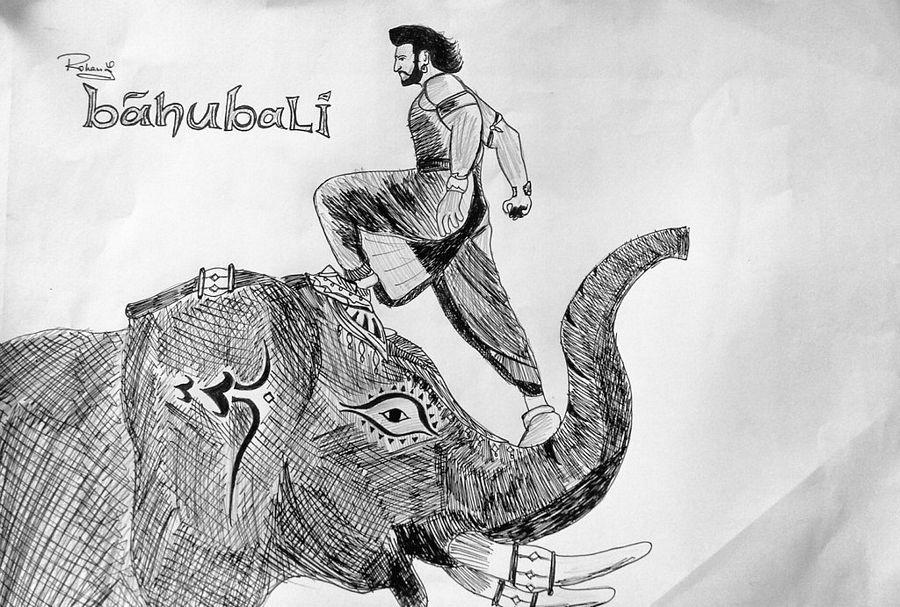 Rohan
bāhubali